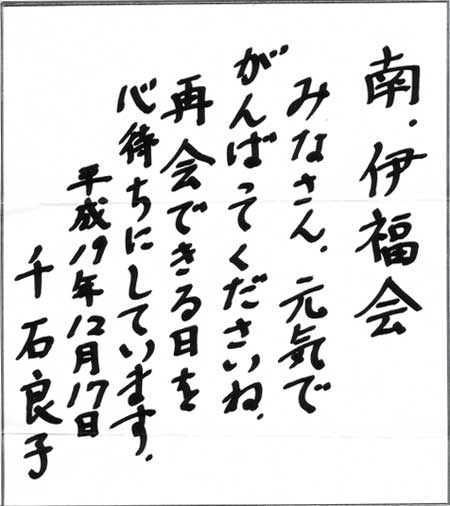 南.伊福会
みなさん.元気で
がんばってくださいね.
再会できる日を
心待ちにしています.
平成19年12月17日
千石良子